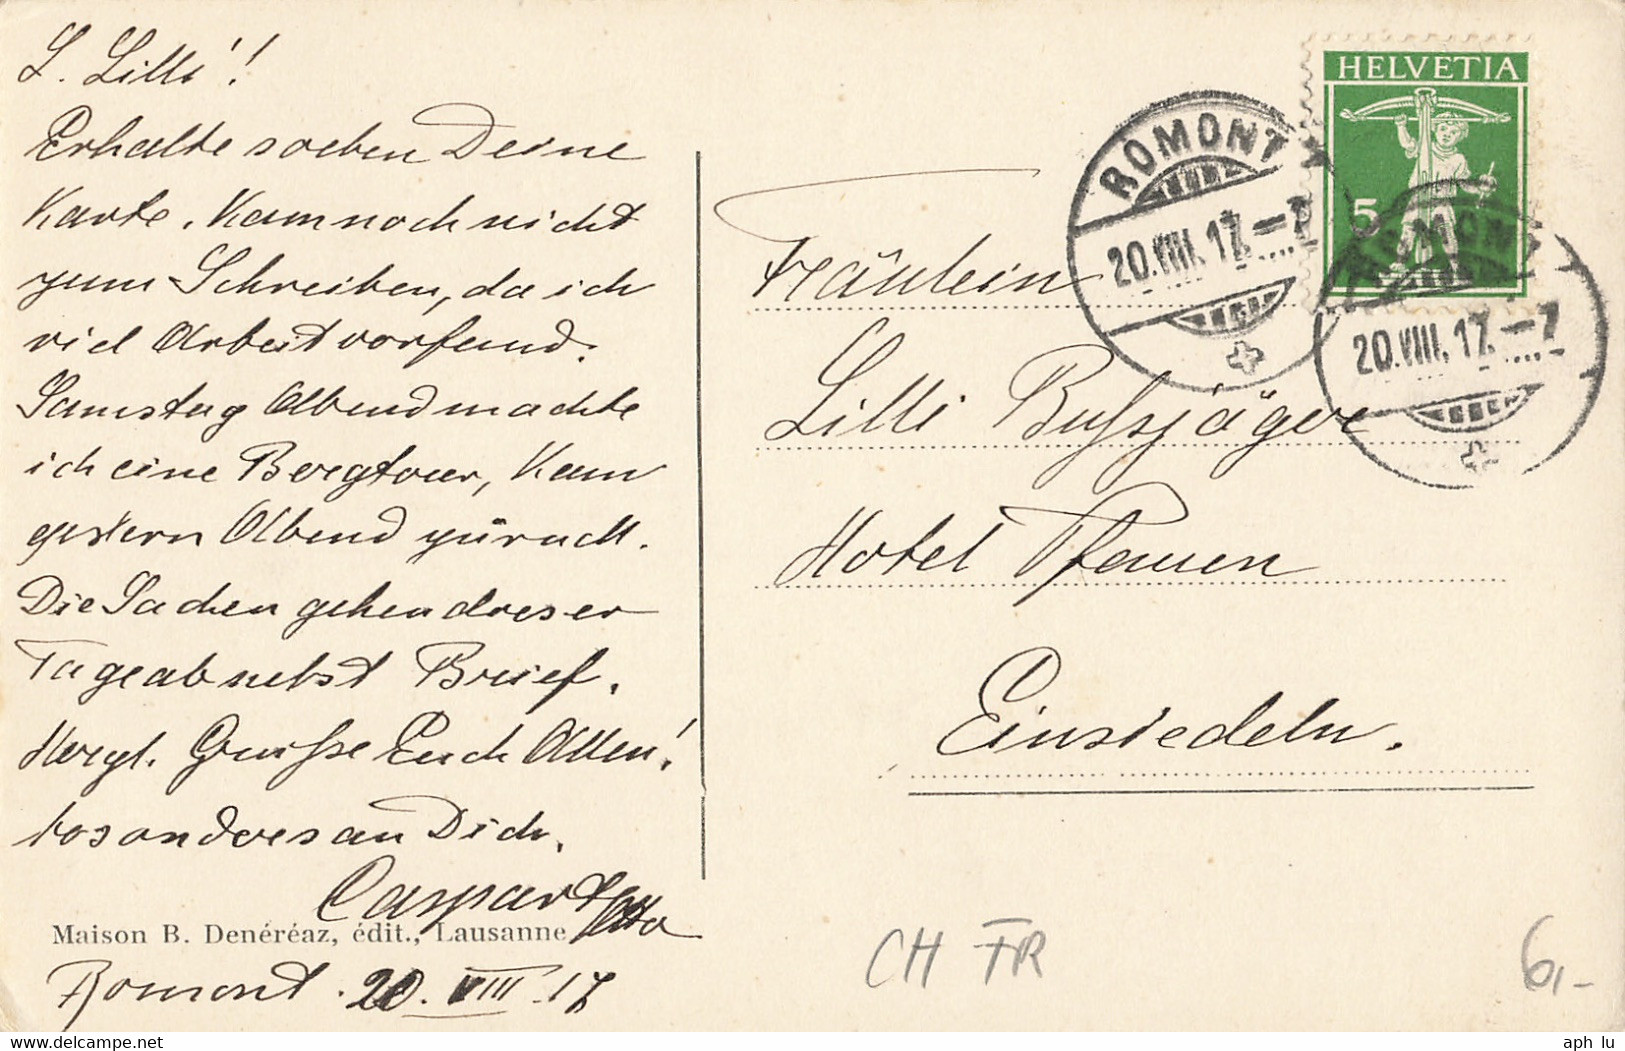 L. Lilli!
Erhalte soeben Deine
Karte. Kam noch nicht
zum Schreiben, da ich
viel Arbeit vorfand.
Samstag Abend machte
ich eine Bergtour, kam
gestern Abend zürück.
Die Sachen gehen dieser
Tage ab nebst Brief.
Herzl. Grüsse Euch Allen!
besonders an Dich.
Caspar
Maison B. Denéréaz, édit., Lausanne
Romont. 20. VIII. 17
HELVETIA
5
ROMONT
20.VIII.17.–7
ROMONT
20.VIII.17.–7
Fräulein
Lilli Bussjäger
Hotel Pfauen
Einsiedeln.
CH FR
6,-
aph lu